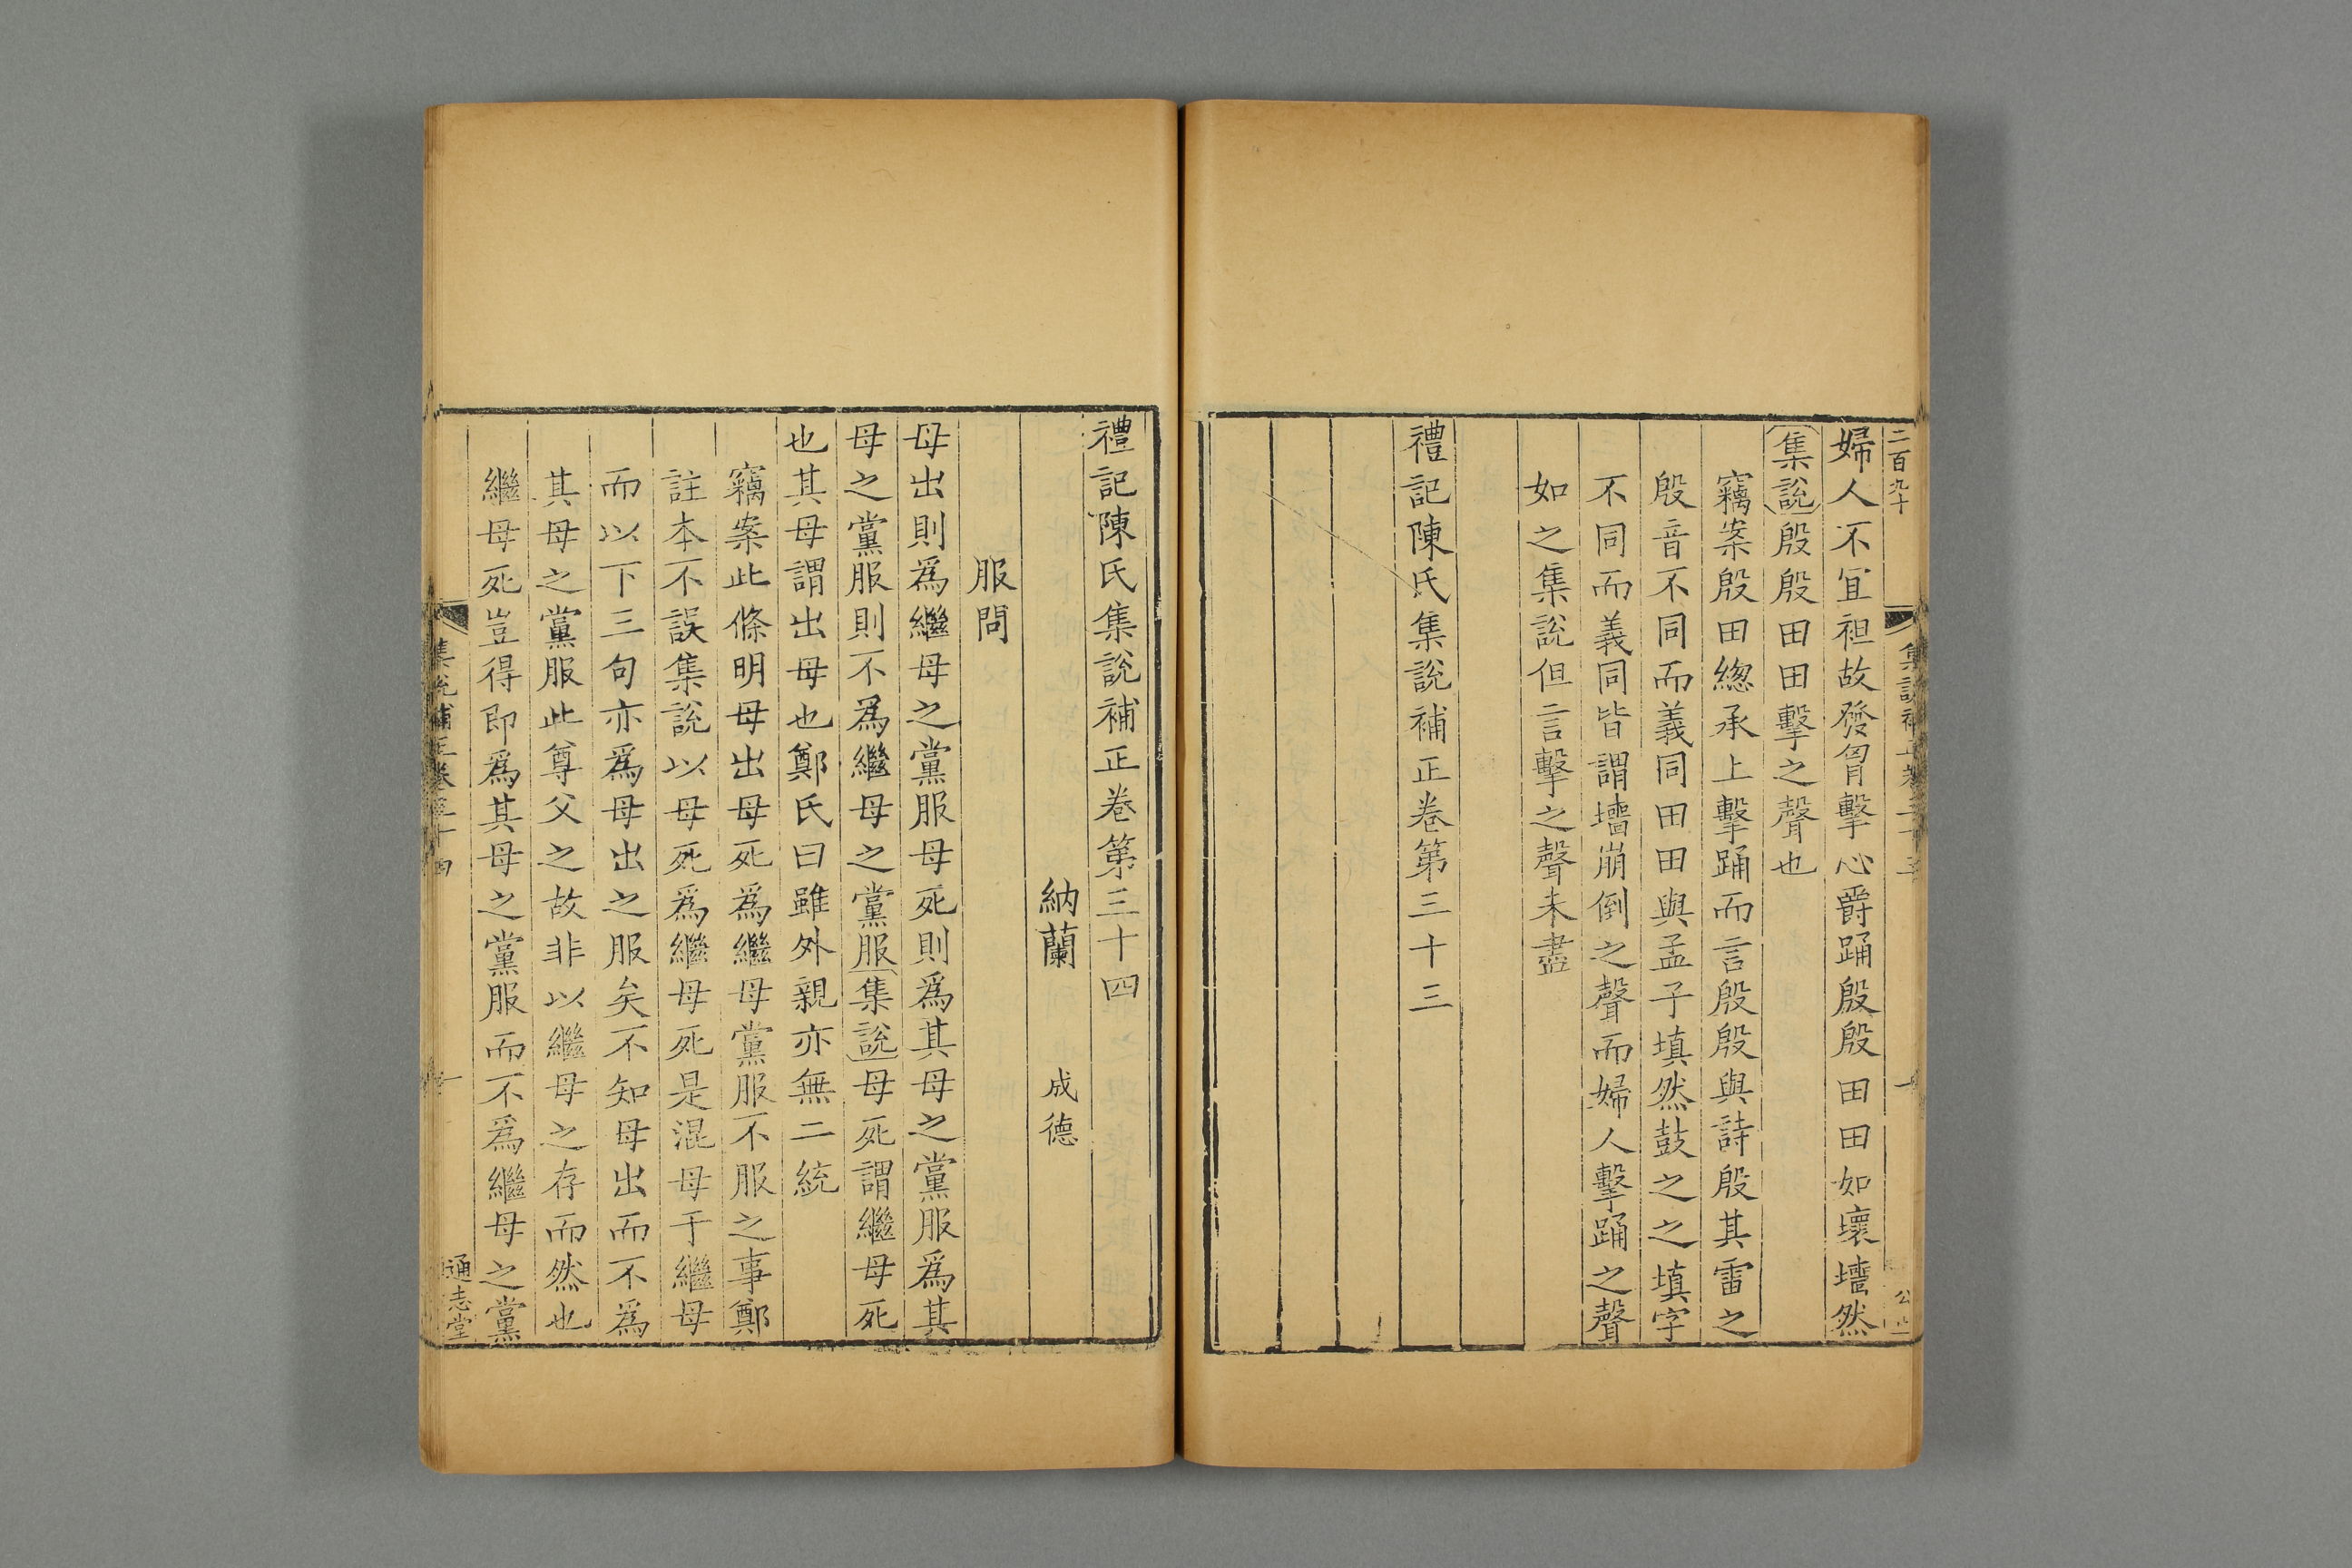 二百九十
集說補正卷三十三
婦人不宜袒故發胷擊心爵踊殷殷田田如壞墻然
集說殷殷田田擊之聲也
竊案殷田緫承上擊踊而言殷殷與詩殷其雷之
殷音不同而義同田田與孟子填然鼓之之填字
不同而義同皆謂墻崩倒之聲而婦人擊踊之聲
如之集說但言擊之聲未盡
禮記陳氏集說補正卷第三十三
禮記陳氏集說補正卷第三十四
納蘭 成德
服問
母出則爲繼母之黨服母死則爲其母之黨服爲其
母之黨服則不爲繼母之黨服集說母死謂繼母死
也其母謂出母也鄭氏曰雖外親亦無二統
竊案此條明母出母死爲繼母黨服不服之事鄭
註本不誤集說以母死爲繼母死是混母于繼母
而以下三句亦爲母出之服矣不知母出而不爲
其母之黨服此尊父之故非以繼母之存而然也
繼母死豈得即爲其母之黨服而不爲繼母之黨
集說補正卷三十四
通志堂